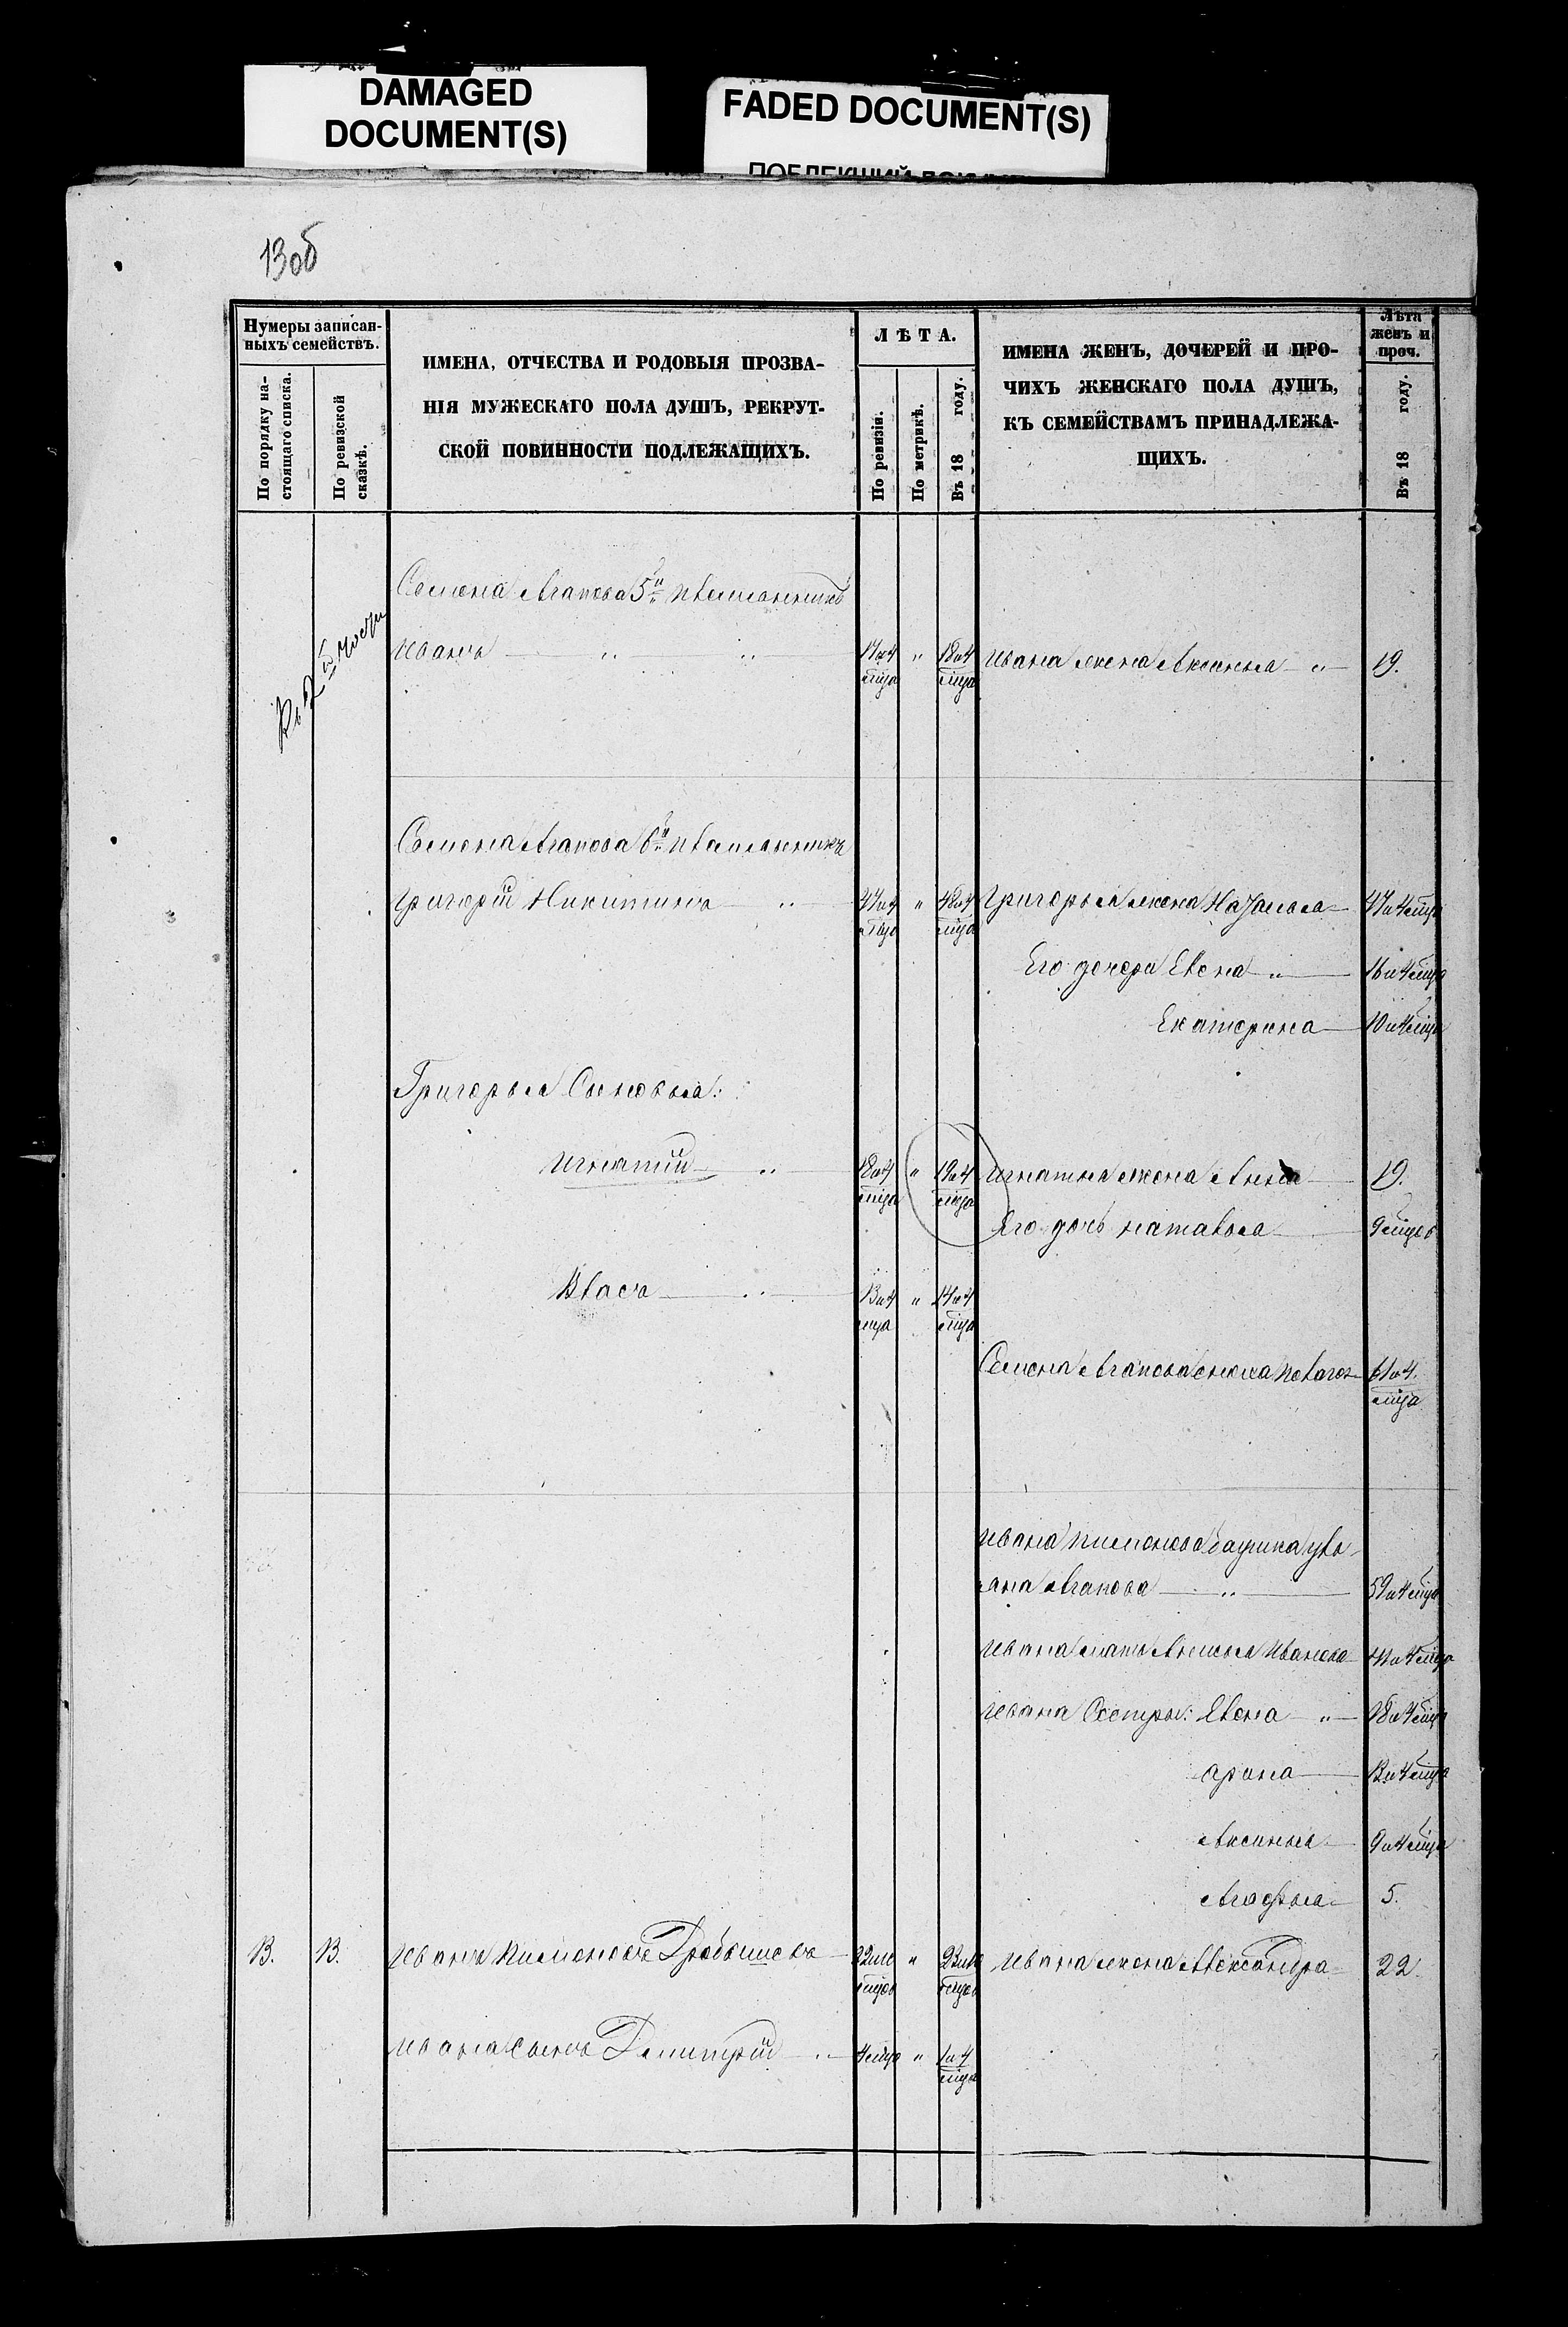 DAMAGED
DOCUMENT(S)
FADED DOCUMENT(S)
13об
Нумеры записан-
ныхъ семействъ.
По порядку на-
стоящаго списка.
По ревизской
сказкѣ.
ИМЕНА, ОТЧЕСТВА И РОДОВЫЯ ПРОЗВА-
НІЯ МУЖЕСКАГО ПОЛА ДУШЪ, РЕКРУТ-
СКОЙ ПОВИННОСТИ ПОДЛЕЖАЩИХЪ.
ЛѢТА.
По ревизіи.
По метрикѣ.
Въ 18 году.
ИМЕНА ЖЕНЪ, ДОЧЕРЕЙ И ПРО-
ЧИХЪ ЖЕНСКАГО ПОЛА ДУШЪ,
КЪ СЕМЕЙСТВАМЪ ПРИНАДЛЕЖА-
ЩИХЪ.
Лѣта
женъ и
проч.
Въ 18 году.
Семена Агапова 5й племянникъ
Иванъ " " 17и4 мца " 18и4 мца Ивана жена Аксинья " 19.
Семена Агапова 6й племянникъ
Григорій Никитинъ " 47и4 мца " 48и4 мца Григорья жена Наталья 47и4 мца
Его дочери Елена " 16и4 мца
Екатерина 10и4 мца
Григорья Сыновья:
Игнатій " 18и4 мца " 19и4 мца Игнатья жена Анна 19.
Его дочь наталья 9 мцов
Власъ " 13и4 мца " 14и4 мца
Семена Агапова сноха 61и4 мца
Ивана Пимонова бабушка улья-
яна Агапова " 59и4 мца
Ивана мать Анисья Иванова 4и4 мца
Ивана Сестры: Елена " 18и4 мца
арина 13и4 мца
Аксинья 9и4 мца
Агафья 5.
13. 13. Иванъ Пимоновъ 22и10 мцов " 23и10 мцов Ивана жена Александра 22.
Ивана сынъ Дмитрій " 4 мца " 1и4 мца